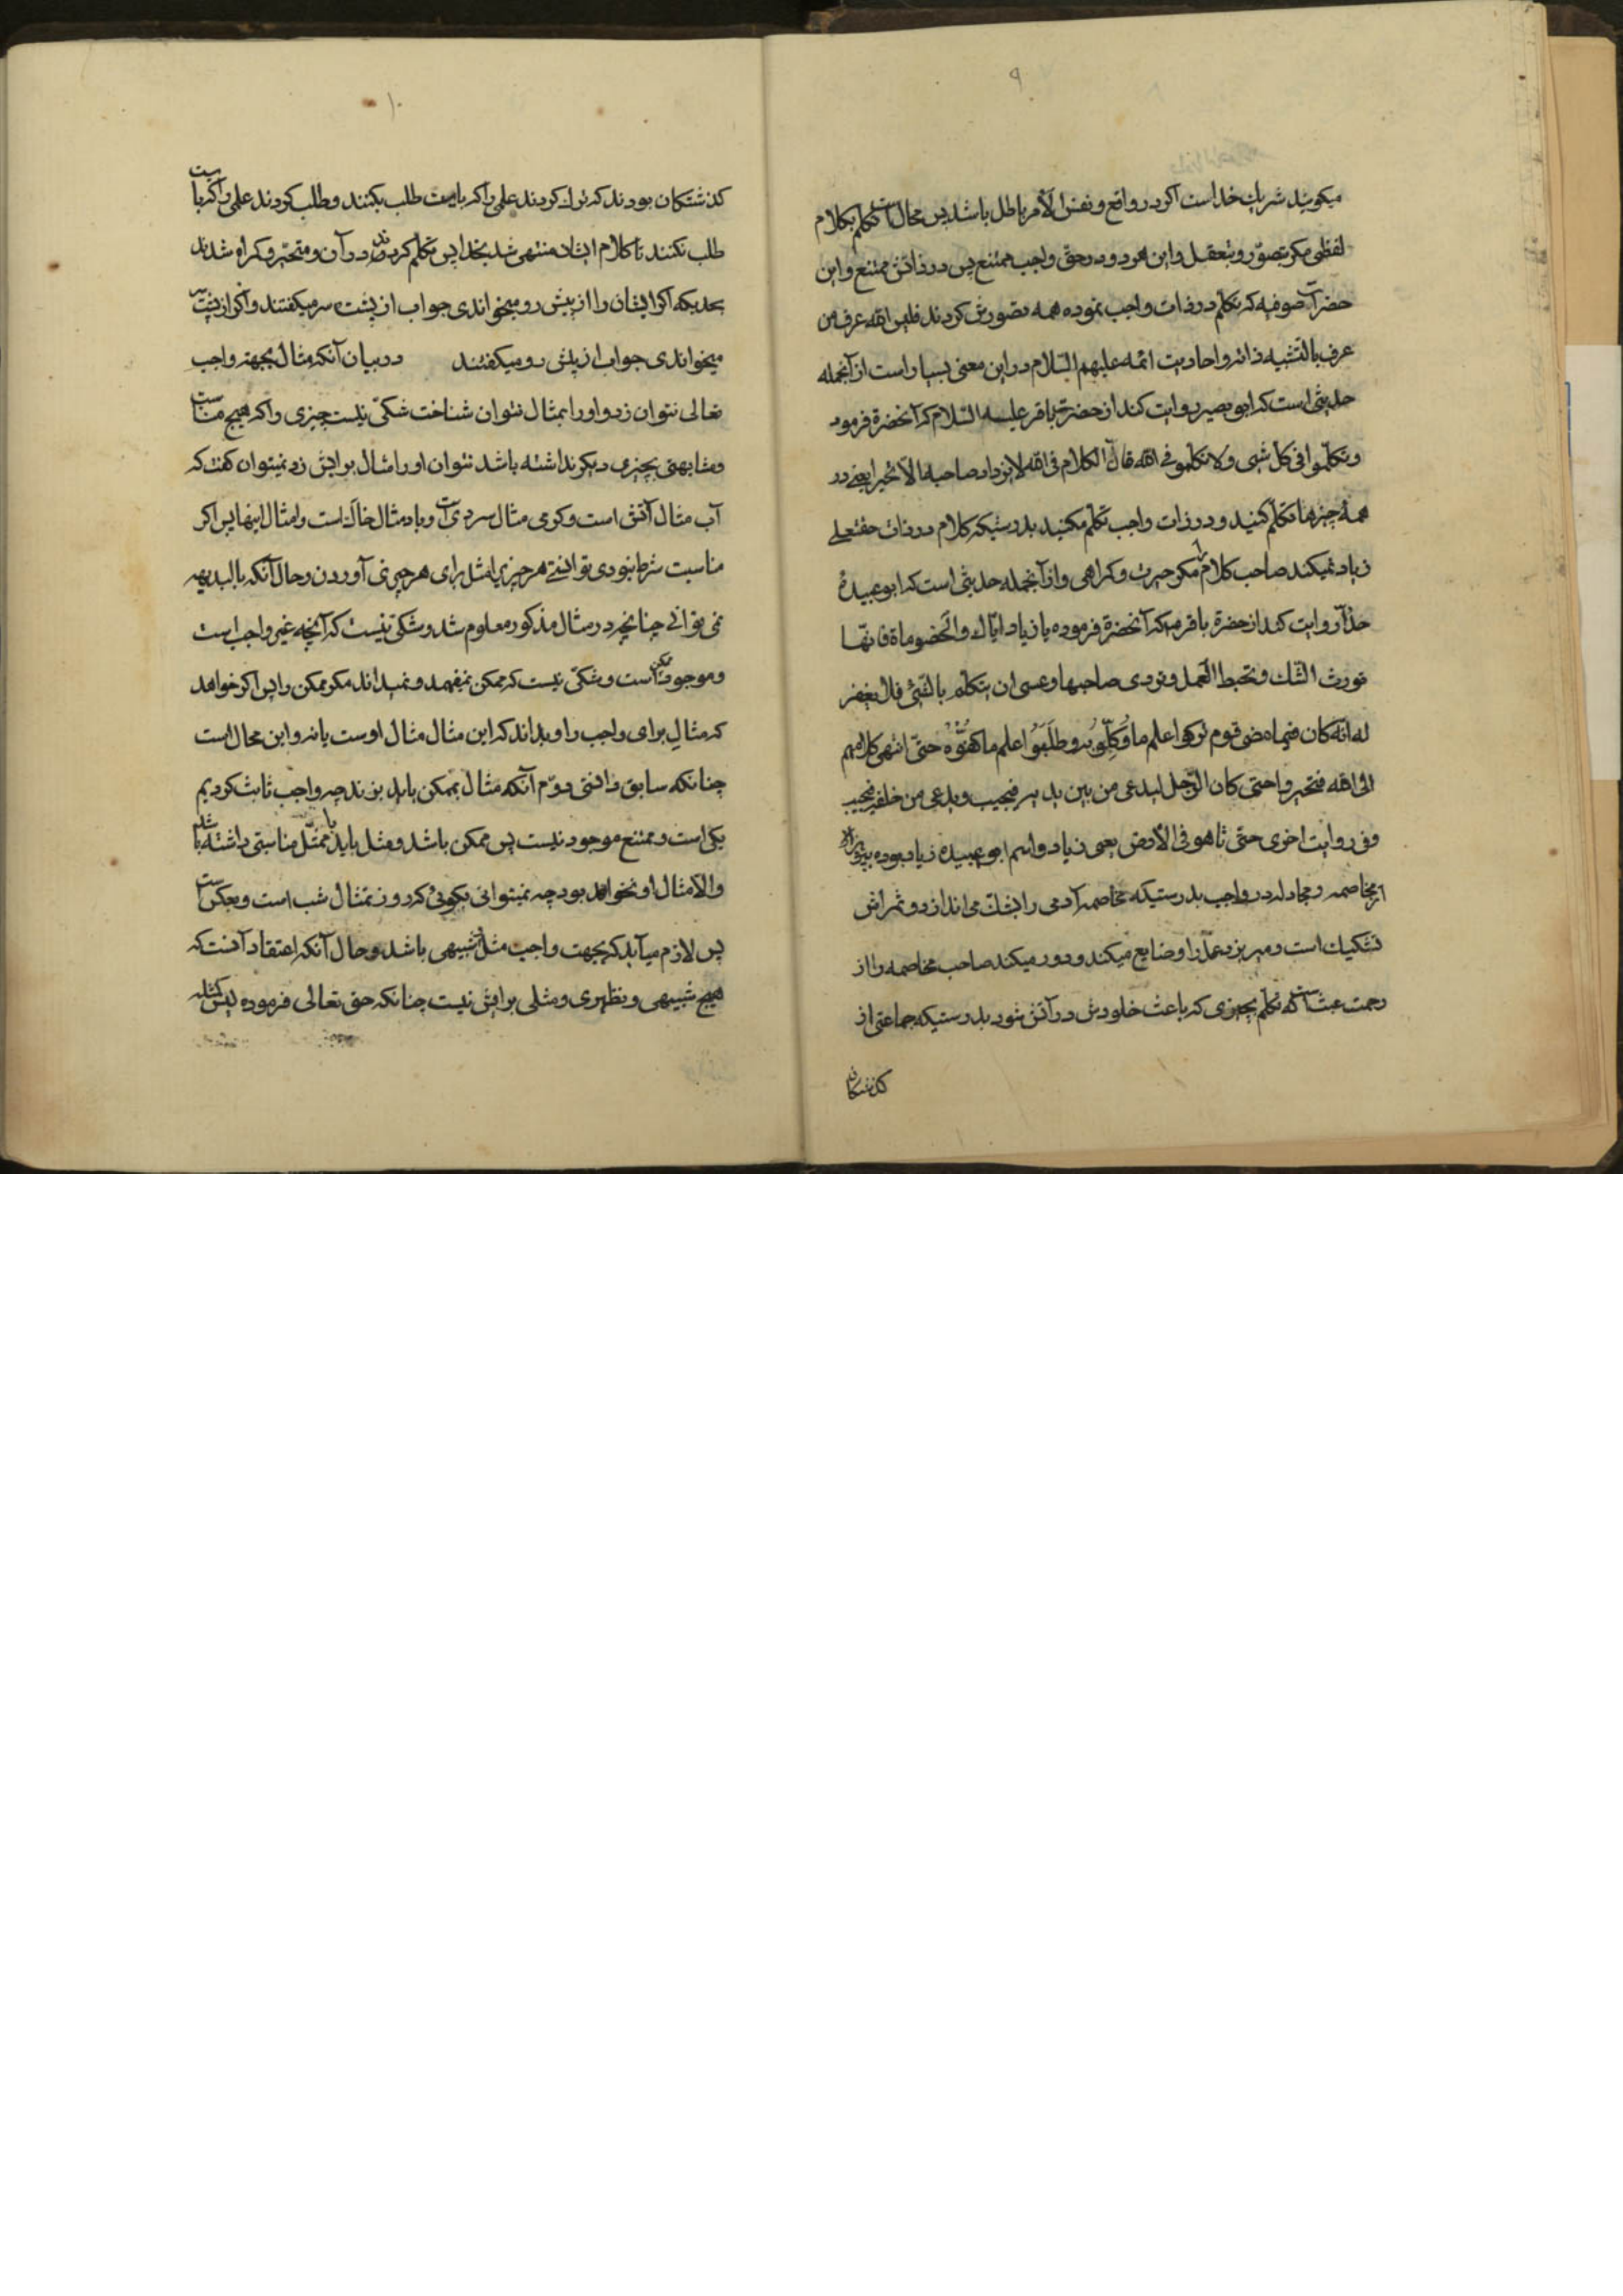 ۹
میکویند شریک خداست اکر در واقع و نفس الأمر باطل باشد پس محال است تکلم بکلام
لفظی مکر بتصور و بتعقل و این هر دو در حق واجب ممتنع پس در ذاتش ممتنع و این
حضرات صوفیه که تکلم در ذات واجب نموده همه تصورش کردند فلیس الله عرف من
عرف بالتشبیه ذاته و احادیث ائمه علیهم السّلام در این معنی بسیار است از آنجمله
حدیثی است که ابو بصیر روایت کند از حضرة باقر علیه السّلام که آنحضرة فرمود
و تکلّموا فی کل شیی و لا تکلّمو فی الله فانّ الکلام فی الله لا یزداد صاحبه الّا تحیرا یعنی در
همهٔ چیزها تکلّم کنید و در ذات واجب تکلّم مکنید بدرستیکه کلام در ذات حقتعلی
زیاد نمیکند صاحب کلام را مکر حیرت و کراهی و از آنجمله حدیثی است که ابو عبیدهٔ
حذّآ روایت کند از حضرة باقر که آنحضرة فرموده یا زیاد ایّاک و الخصوماة فانّها
تورث الشّک و تحبط العمل و تردی صاحبها و عسی ان یتکلّم بالشّیء فلا یغفر
له انّه کان فیما مضی قوم ترکوا علم ما وُکِّلُو به و طلبوُا علم ما کفُوُه حتّی انتهی کلامهم
الی الله فتحیروا حتی کان الرّجل لیدعی من بین یدیه فیجیب و یدعی من خلفه فیجیب
و فی روایت اخری حتّی تاهو فی الأرض یعنی زیاد و اسم ابو عبیده زیاد بوده بپرهیز
از مخاصمه و مجادله در واجب بدرستیکه مخاصمه آدمی را بشکّ می اندازد و ثمراش
تشکیک است و میریزد عمل را و ضایع میکند و دور میکند صاحب مخاصمه را از
رحمت تکلّم بچیزی که باعث خلودش در آتش شود بدرستیکه جماعتی از
کذشتکان
۱۰
کذشتکان بودند که ترک کردند علمی را که بایست طلب بکنند و طلب کردند علمی را که بایست
طلب نکنند تا کلام ایشان منتهی شد بخدا پس تکلّم کردند در آن و متحیّر و کراه شدند
بحدیکه اکر ایشان را از پیش رو میخواندی جواب از پشت سر میکفتند و اکر از پشت سر
میخواندی جواب از پیش رو میکفتند در بیان آنکه مثال بجهة واجب
تعالی نتوان زد و او را بمثال نتوان شناخت شکّی نیست چیزی را که هیچ مناسبت
و مشابهتی بچیزی دیکر نداشته باشد نتوان او را مثال برایش زد نمیتوان کفت که
آب مثال آتش است و کرمی مثال سردی است و باد مثال خاک است و امثال اینها پس اکر
مناسبت شرط نبودی توانستی هر چیزی را مثل برای هر چیزی آوردن و حال آنکه بالبدیهه
نمی توانی چنانچه در مثال مذکور معلوم شد و شکی نیست که آنچه غیر واجب است
و موجود است ممکن است و شکّی نیست که ممکن نمیفهمد و نمیداند مکر ممکن را پس اکر خواهد
که مثال برای واجب راو بداند که این مثال مثال اوست یا نه و این محال است
چنانکه سابق دانستی دوّم آنکه مثال بممکن باید بزند چه واجب ثابت کردیم
یکی است و ممتنع موجود نیست پس ممکن باشد و مثل باید با ممثّل مناسبتی داشته باشد
و الّا مثال او نخواهد بود چه نمیتوانی بکوئی که روز تمثال شب است و بعکس
پس لازم میآید که بجهت واجب مثل و شبیهی باشد و حال آنکه اعتقاد آنست که
هیچ شبیهی و نظیری و مثلی برایش نیست چنانکه حق تعالی فرموده لیس کمثله